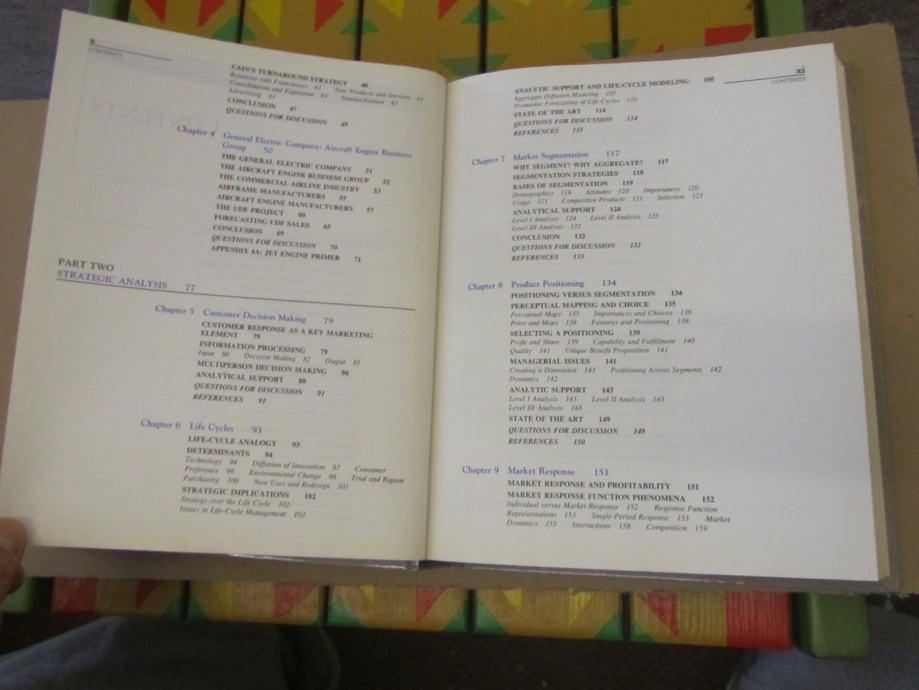 x
CONTENTS
CAIN'S TURNAROUND STRATEGY 40
Relations with Franchisees 41 New Products and Services 41
Consolidation and Expansion 41 Standardization 43
Advertising 43
CONCLUSION 47
QUESTIONS FOR DISCUSSION 49
Chapter 4 General Electric Company: Aircraft Engine Business
Group 50
THE GENERAL ELECTRIC COMPANY 51
THE AIRCRAFT ENGINE BUSINESS GROUP 52
THE COMMERCIAL AIRLINE INDUSTRY 53
AIRFRAME MANUFACTURERS 55
AIRCRAFT ENGINE MANUFACTURERS 57
THE UDF PROJECT 60
FORECASTING UDF SALES 65
CONCLUSION 69
QUESTIONS FOR DISCUSSION 70
APPENDIX 4A: JET ENGINE PRIMER 71
PART TWO
STRATEGIC ANALYSIS 77
Chapter 5 Customer Decision Making 79
CUSTOMER RESPONSE AS A KEY MARKETING
ELEMENT 79
INFORMATION PROCESSING 79
Input 80 Decision Making 82 Output 85
MULTIPERSON DECISION MAKING 86
ANALYTICAL SUPPORT 88
QUESTIONS FOR DISCUSSION 91
REFERENCES 91
Chapter 6 Life Cycles 93
LIFE-CYCLE ANALOGY 93
DETERMINANTS 94
Technology 94 Diffusion of Innovation 97 Consumer
Preference 98 Environmental Change 98 Trial and Repeat
Purchasing 100 New Uses and Redesign 101
STRATEGIC IMPLICATIONS 102
Strategy over the Life Cycle 102
Issues in Life-Cycle Management 103
xi
CONTENTS
ANALYTIC SUPPORT AND LIFE-CYCLE MODELING 105
Aggregate Diffusion Modeling 105
Premarket Forecasting of Life Cycles 110
STATE OF THE ART 114
QUESTIONS FOR DISCUSSION 114
REFERENCES 115
Chapter 7 Market Segmentation 117
WHY SEGMENT? WHY AGGREGATE? 117
SEGMENTATION STRATEGIES 118
BASES OF SEGMENTATION 119
Demographics 119 Attitudes 120 Importances 120
Usage 121 Competitive Products 121 Selection 123
ANALYTICAL SUPPORT 124
Level I Analysis 124 Level II Analysis 125
Level III Analysis 132
CONCLUSION 132
QUESTIONS FOR DISCUSSION 132
REFERENCES 133
Chapter 8 Product Positioning 134
POSITIONING VERSUS SEGMENTATION 134
PERCEPTUAL MAPPING AND CHOICE 135
Perceptual Maps 135 Importances and Choices 136
Price and Maps 138 Features and Positioning 139
SELECTING A POSITIONING 139
Profit and Share 139 Capability and Fulfillment 140
Quality 141 Unique Benefit Proposition 141
MANAGERIAL ISSUES 141
Creating a Dimension 141 Positioning Across Segments 142
Dynamics 142
ANALYTIC SUPPORT 143
Level I Analysis 143 Level II Analysis 143
Level III Analysis 148
STATE OF THE ART 149
QUESTIONS FOR DISCUSSION 149
REFERENCES 150
Chapter 9 Market Response 151
MARKET RESPONSE AND PROFITABILITY 151
MARKET RESPONSE FUNCTION PHENOMENA 152
Individual versus Market Response 152 Response Function
Representations 153 Single-Period Response 153 Market
Dynamics 155 Interactions 158 Competition 159